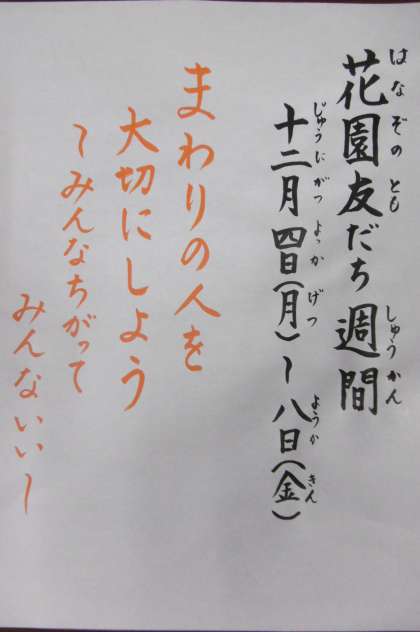 花園友だち週間
十二月四日(月)~八日(金)
まわりの人を
大切にしよう
~みんなちがって
みんないい~
はなぞの とも しゅうかん
じゅうにがつ よっか げつ ようか きん